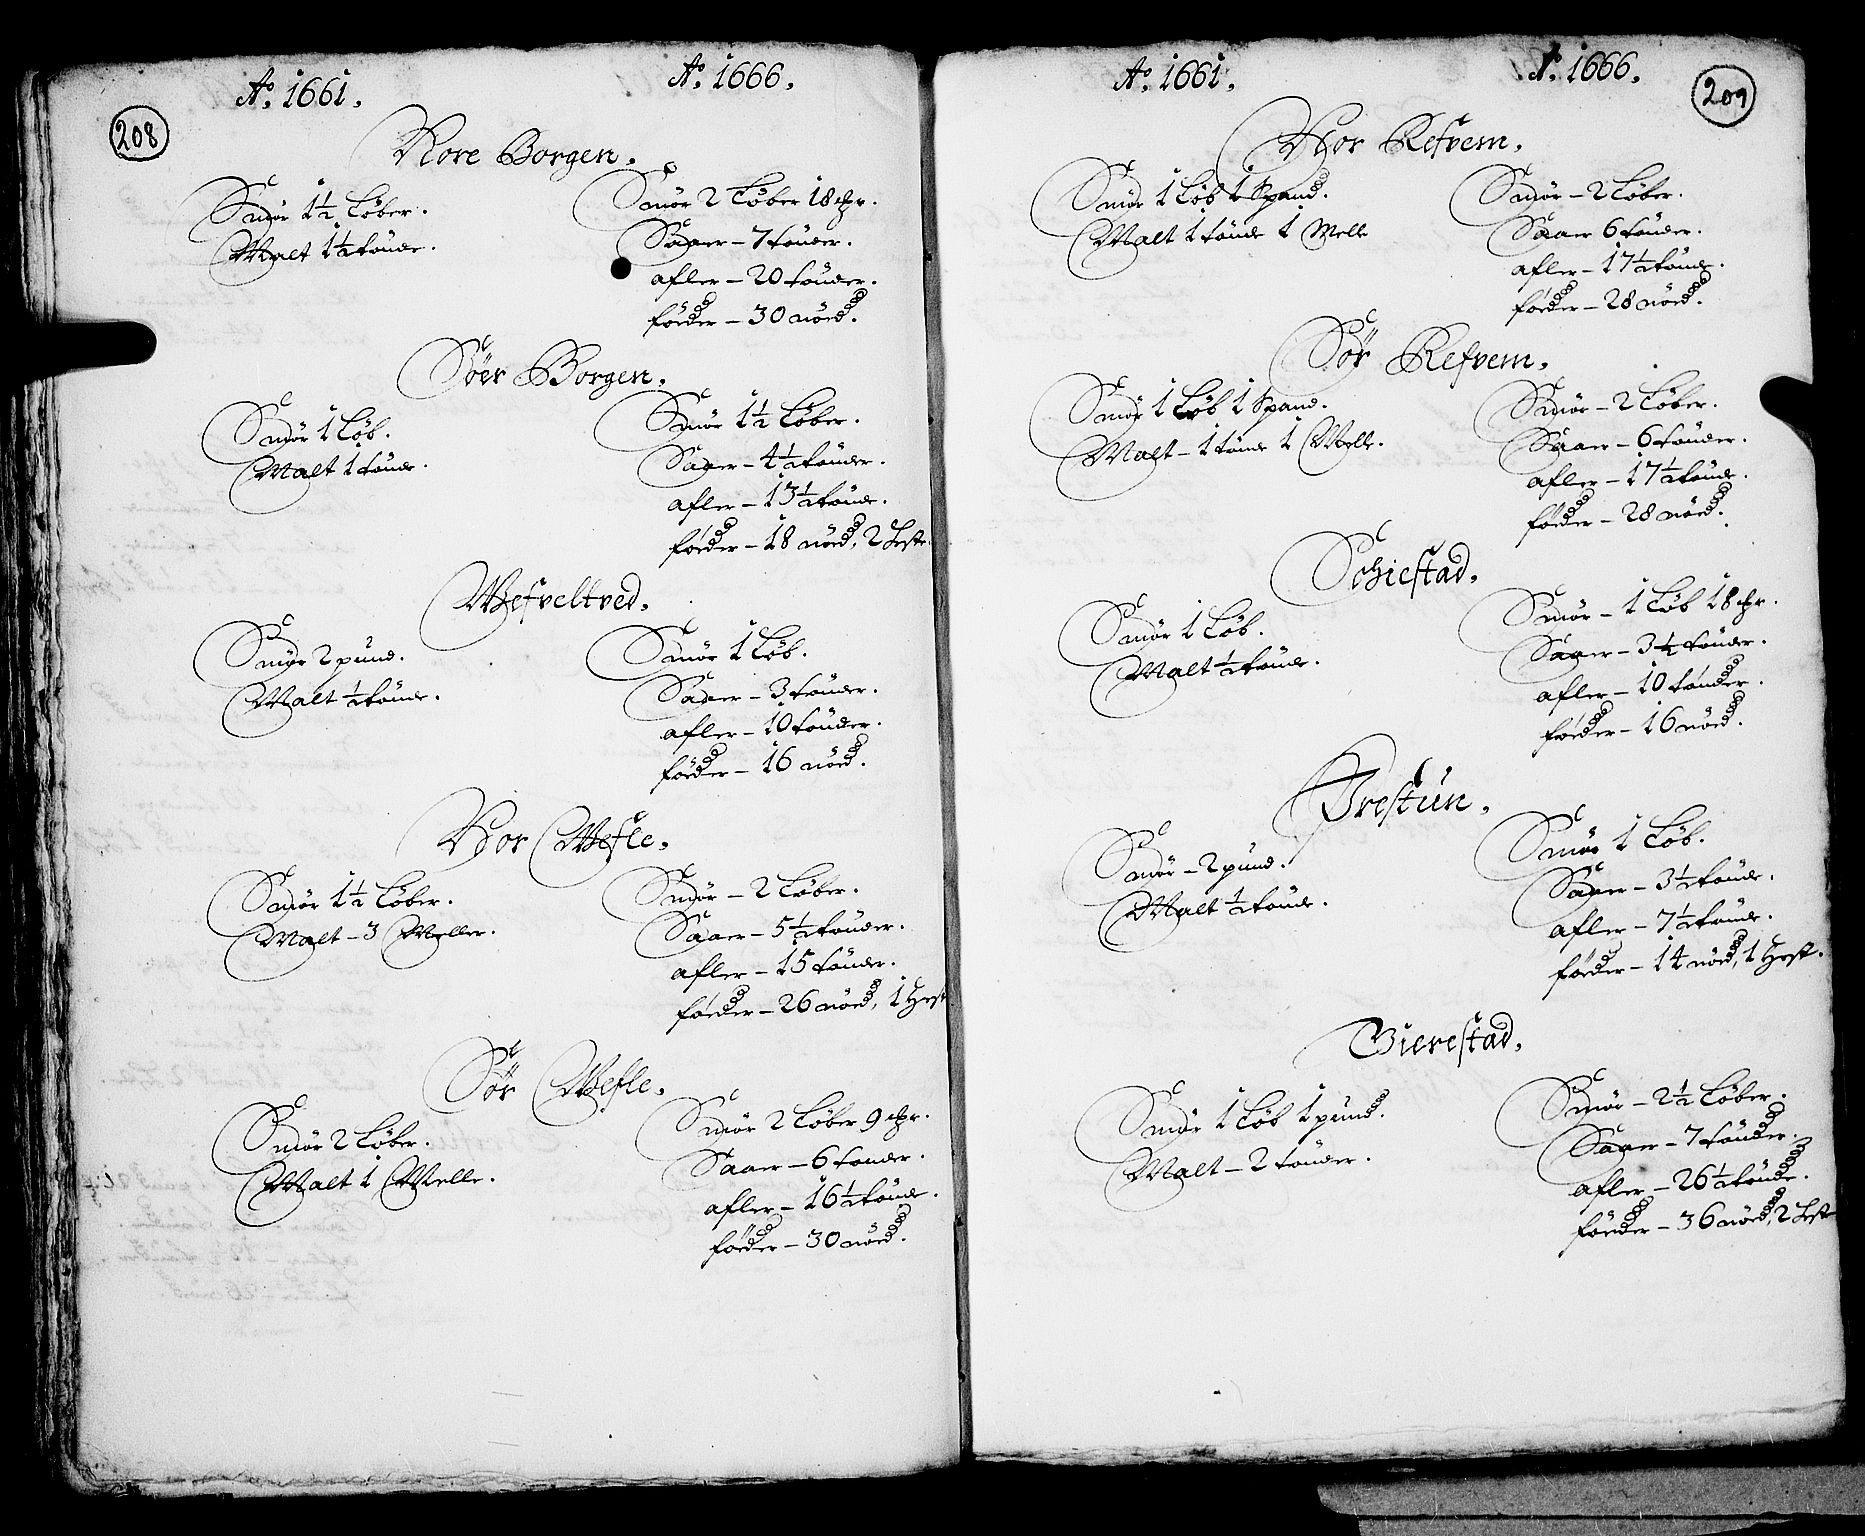 208
Ao. 1661.
Ao. 1666.
Nore Borgen.
Smör 1½ Løber.
Malt 1½ tönde.
Smör 2 Løber 18 mkr.
Saaer – 7 tönder.
afler – 20 tönder.
föder – 30 nöed.
Söer Borgen.
Smör 1 Løb.
Malt 1 tönde.
Smör 1½ Løber.
Saaer – 4½ tönder.
afler – 13½ tönde.
föder – 18 nöed, 2 Heste.
Wefveltved.
Smör 2 pund.
Malt ½ tönde.
Smör 1 Løb.
Saaer – 3 tönder.
afler – 10 tönder.
föder – 16 nöed.
Nor Wefle.
Smör 1½ Løber.
Malt – 3 Meller.
Smör – 2 Løber.
Saaer – 5½ tönder.
afler – 15 tönder.
föder – 26 nöed, 1 Hest
Sör Wefle.
Smör 2 Løber.
Malt 1 Melle.
Smör 2 Løber 9 mkr.
Saaer – 6 tönder.
afler – 16½ tönde.
föder – 30 nöed.
209
Ao. 1661.
Ao. 1666.
Nor Refvem.
Smör 1 Løb 1 Spand.
Malt 1 tönde 1 Melle
Smör – 2 Løber.
Saaer 6 tönder.
afler – 17½ tönde.
föder – 28 nöed.
Sör Refvem.
Smör 1 Løb 1 Spand.
Malt – 1 tönde 1 Melle.
Smör – 2 Løber.
Saaer – 6 tönder.
afler – 17½ tönde.
föder – 28 nöed.
Schiestad.
Smör 1 Løb.
Malt ½ tönde.
Smör – 1 Løb 18 mkr.
Saaer – 3½ tönder.
afler – 10 tönder.
föder – 16 nöed.
Örestün.
Smör – 2 pund.
Malt ½ tönde.
Smör 1 Løb.
Saaer – 3½ tönde.
afler – 7½ tönde.
föder – 14 nöed, 1 Hest.
Bierestad.
Smör 1 Løb 1 pund.
Malt – 2 tönder.
Smör – 2½ Løber.
Saaer – 7 tönder.
afler – 26½ tönde.
föder – 36 nöed, 2 Hest